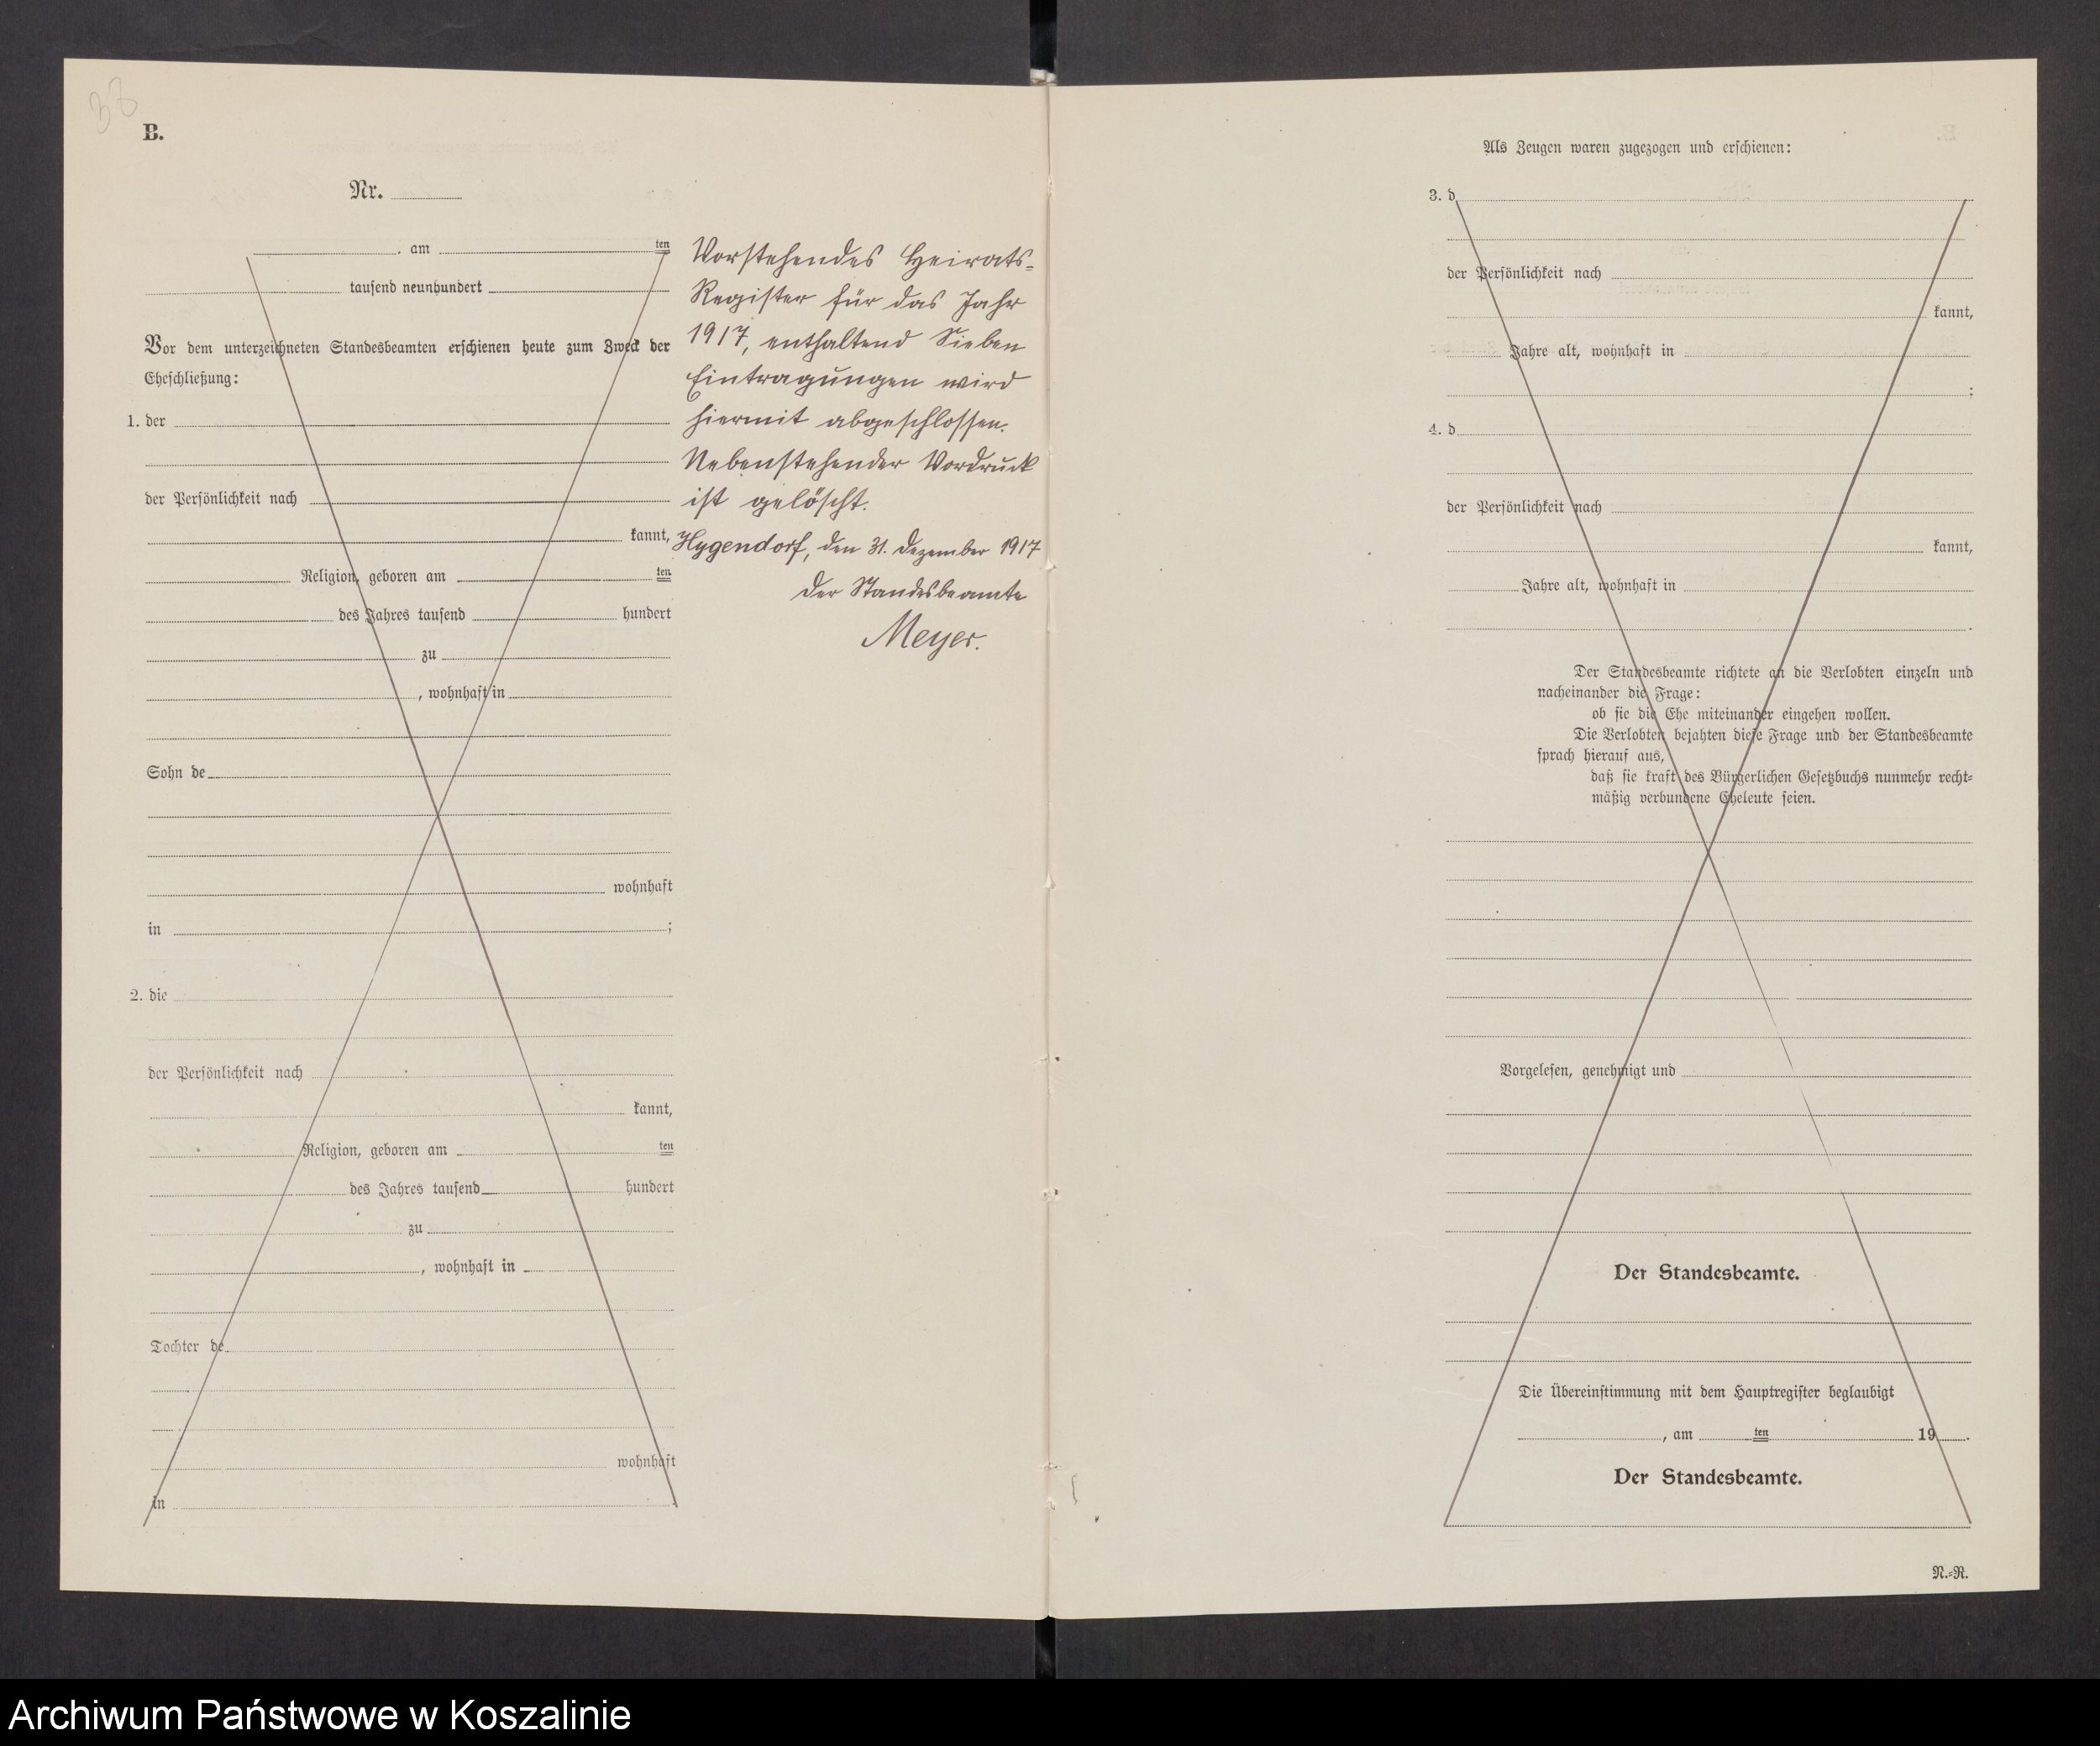 38
B.
Nr.
am ten
tausend neunhundert
Vor dem unterzeichneten Standesbeamten erschienen heute zum Zweck der
Eheschließung:
1. der
der Persönlichkeit nach
kannt,
Religion, geboren am ten
des Jahres tausend hundert
zu
, wohnhaft in
Sohn de
wohnhaft
in ;
2. die
der Persönlichkeit nach
kannt,
Religion, geboren am ten
des Jahres tausend hundert
zu
, wohnhaft in
Tochter de
wohnhaft
in
Vorstehendes Heirats-
Register für das Jahr
1917, enthaltend Sieben
Eintragungen wird
hiermit abgeschlossen.
Nebenstehender Vordruck
ist gelöscht.
Hygendorf, den 31. Dezember 1917
Der Standesbeamte
Meyer.
Als Zeugen waren zugezogen und erschienen:
3. d
der Persönlichkeit nach
kannt,
Jahre alt, wohnhaft in
;
4. d
der Persönlichkeit nach
kannt,
Jahre alt, wohnhaft in
.
Der Standesbeamte richtete an die Verlobten einzeln und
nacheinander die Frage:
ob sie die Ehe miteinander eingehen wollen.
Die Verlobten bejahten diese Frage und der Standesbeamte
sprach hierauf aus,
daß sie kraft des Bürgerlichen Gesetzbuchs nunmehr recht-
mäßig verbundene Eheleute seien.
Vorgelesen, genehmigt und
Der Standesbeamte.
Die Übereinstimmung mit dem Hauptregister beglaubigt
, am ten 19 .
Der Standesbeamte.
N.-R.
Archiwum Państwowe w Koszalinie